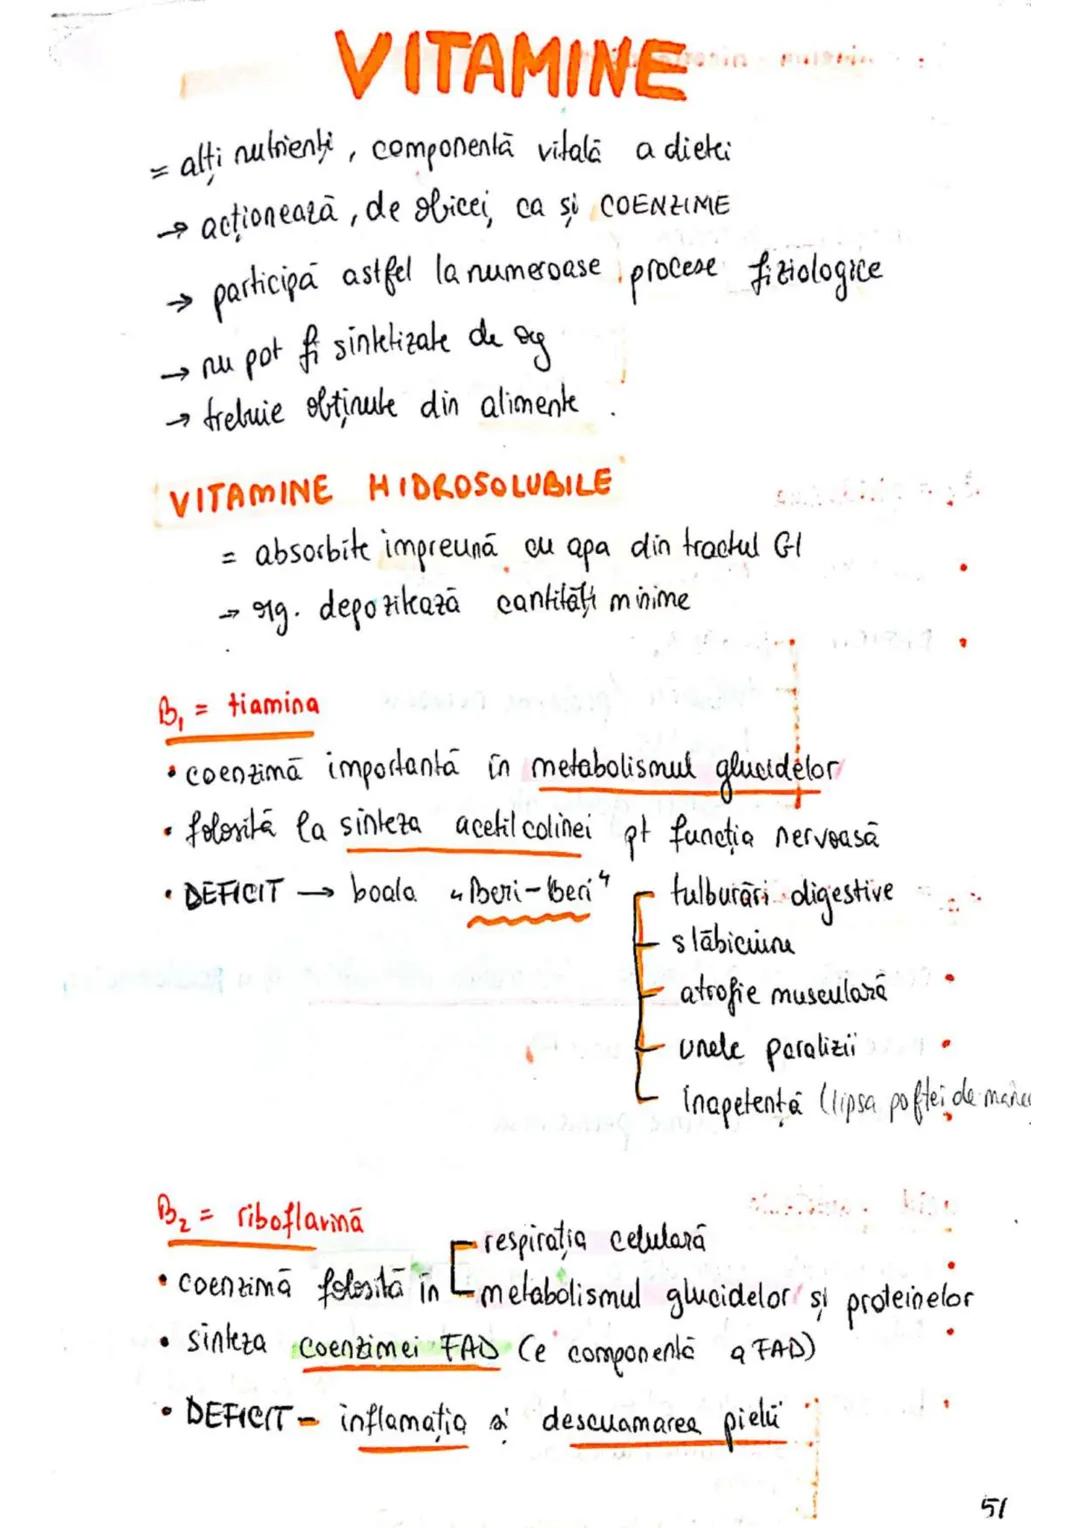 VITAMINE
= alți nutrienți, componentă vitală a dietei
→ acționează, de obicei, ca și COENZIME
→ participă astfel la numeroase procese fiziologice
→ nu pot fi sintetizate de org
→ trebuie obținute din alimente.
VITAMINE HIDROSOLUBILE
= absorbite împreună cu apa din tractul GI
→ org. depozitează cantități minime
B₁ = tiamina
• coenzimă importantă în metabolismul glucidelor
• folosită la sinteza acetilcolinei pt funcția nervoasă
• DEFICIT → boala "Beri-Beri"
tulburări digestive
slăbiciune
atrofie musculară
unele paralizii
inapetență (lipsa poftei de
B₂ = riboflavină
respirația celulară
• coenzimă folosită în metabolismul glucidelor și proteinelor
• sinteza coenzimei FAD (e componentă a FAD)
• DEFICIT - inflamația și descuamarea pielii
51